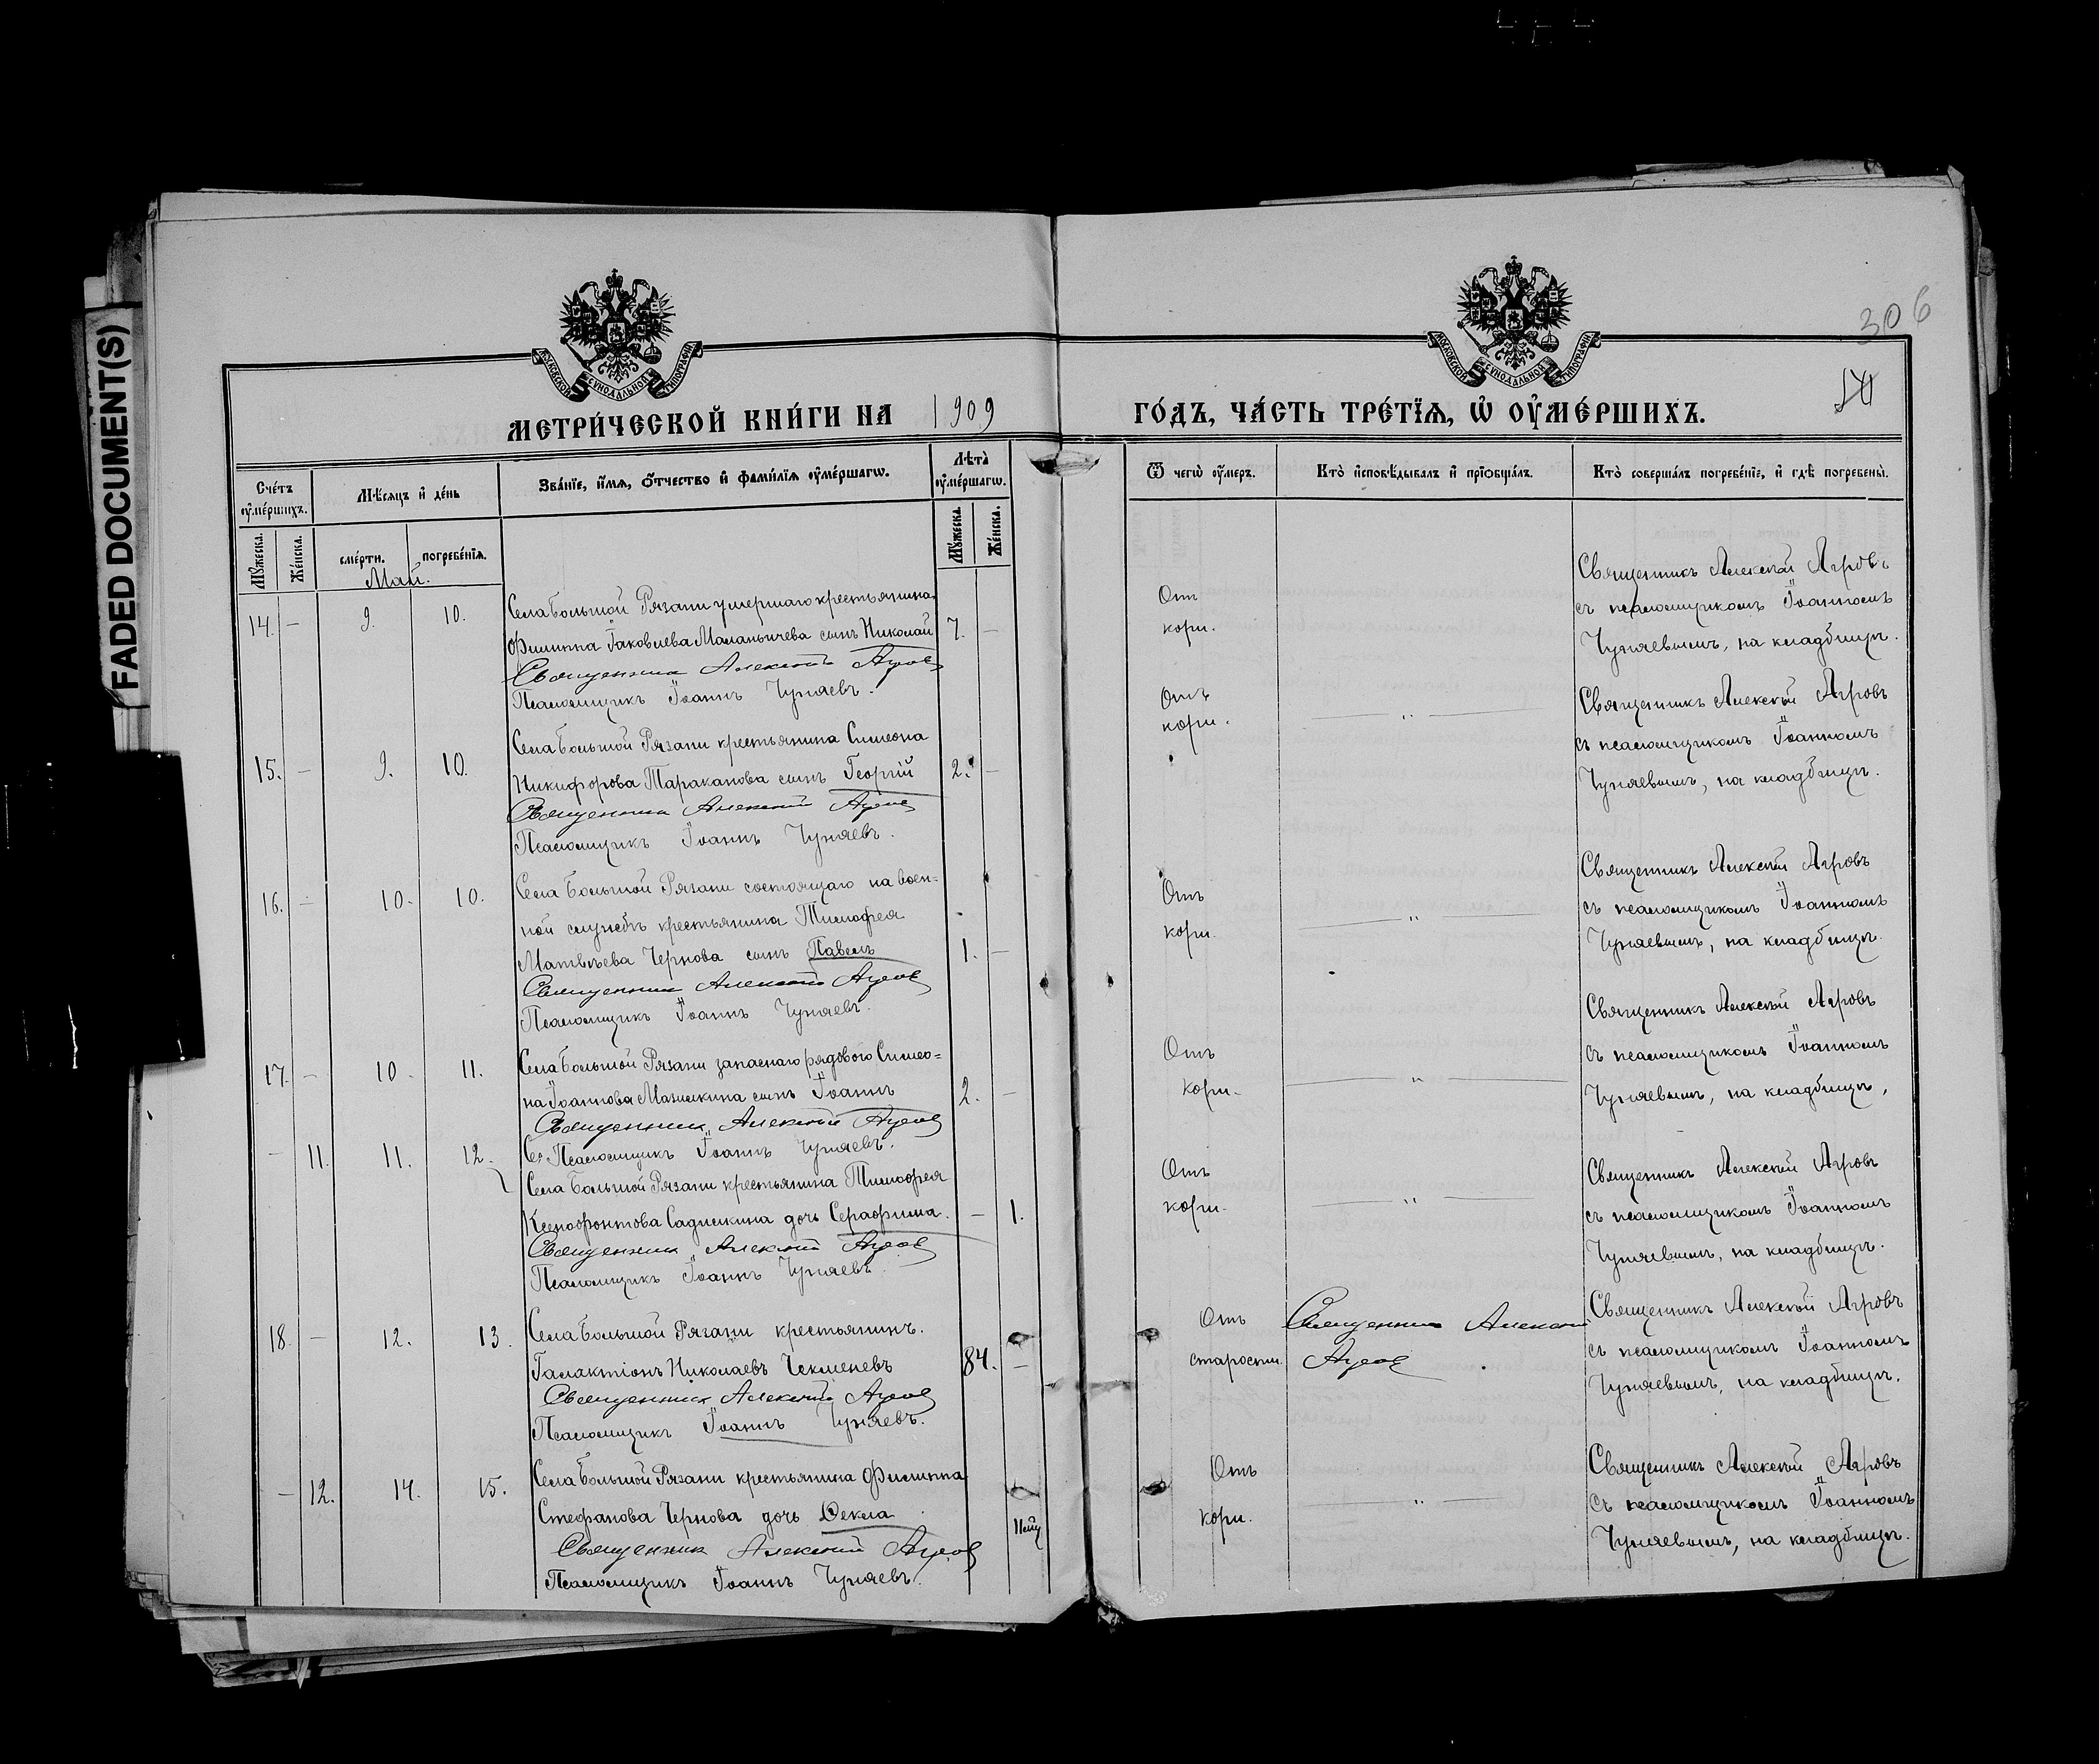 FADED DOCUMENT(S)
МОСКОВСКОЙ СѴНОДАЛЬНОЙ ТИПОГРАФІИ
МОСКОВСКОЙ СѴНОДАЛЬНОЙ ТИПОГРАФІИ
306
МЕТРИ́ЧЕСКОЙ КНИ́ГИ НА 1909 ГО́ДЪ, ЧА́СТЬ ТРЕ́ТЇѦ, Ѡ҆ ОУ҆МЕ́РШИХЪ.
Сче́тъ оу҆ме́ршихъ.
Мѣ́сѧцъ и҆ де́нь
Зва́нїе, и҆́мѧ, ѻ҆́тчество и҆ фами́лїѧ оу҆ме́ршагѡ.
Лѣ́та оу҆ме́ршагѡ.
Ѿ чегѡ̀ оу҆́меръ.
Кто̀ и҆сповѣ́дывалъ и҆ прїѡбща́лъ.
Кто̀ соверша́лъ погребе́нїе, и҆ гдѣ̀ погребены̀.
Мꙋ́жеска.
Же́нска.
сме́рти.
погребе́нїѧ.
Мꙋ́жеска.
Же́нска.
Май.
14. — 9. 10. Села Большой Рязани умершаго крестьянина
Филиппа Іаковлева Маланьичева сынъ Николай 7. —
Священникъ Алексій Агровъ
Псаломщикъ Іоаннъ Чуняевъ.
От
кори.
Священникъ Алексѣй Агровъ
съ псаломщикомъ Іоанномъ
Чуняевымъ, на кладбищѣ.
15. — 9. 10. Села Большой Рязани крестьянина Симеона
Никифорова Тараканова сынъ Георгій 2. —
Священникъ Алексій Агровъ
Псаломщикъ Іоаннъ Чуняевъ.
Отъ
кори. — „ —
Священникъ Алексѣй Агровъ
съ псаломщикомъ Іоанномъ
Чуняевымъ, на кладбищѣ.
16. — 10. 10. Села Большой Рязани состоящаго на воен=
ной службѣ крестьянина Тимофея
Матвѣева Чернова сынъ Павелъ 1. —
Священникъ Алексій Агровъ
Псаломщикъ Іоаннъ Чуняевъ.
Отъ
кори. — „ —
Священникъ Алексѣй Агровъ
съ псаломщикомъ Іоанномъ
Чуняевымъ, на кладбищѣ.
17. — 10. 11. Села Большой Рязани запаснаго рядового Симео=
на Іоаннова Мазилкина сынъ Іоаннъ 2. —
Священникъ Алексій Агровъ
Псаломщикъ Іоаннъ Чуняевъ.
Отъ
кори. — „ —
Священникъ Алексѣй Агровъ
съ псаломщикомъ Іоанномъ
Чуняевымъ, на кладбищѣ,
— 11. 11. 12. Села Большой Рязани крестьянина Тимофея
Ксенофонтова Садилкина дочь Серафима. — 1.
Священникъ Алексій Агровъ
Псаломщикъ Іоаннъ Чуняевъ.
Отъ
кори. — „ —
Священникъ Алексѣй Агровъ
съ псаломщикомъ Іоанномъ
Чуняевымъ, на кладбищѣ.
18. — 12. 13. Села Большой Рязани крестьянинъ.
Галактіонъ Николаевъ Чекменевъ 84. —
Священникъ Алексій Агровъ
Псаломщикъ Іоаннъ Чуняевъ.
Отъ
старости.
Священникъ Алексій
Агровъ
Священникъ Алексѣй Агровъ
съ псаломщикомъ Іоанномъ
Чуняевымъ, на кладбищѣ.
— 12. 14. 15. Села Большой Рязани крестьянина Филиппа
Стефанова Чернова дочь Ѳекла 11м.
Священникъ Алексій Агровъ
Псаломщикъ Іоаннъ Чуняевъ.
Отъ
кори. — „ —
Священникъ Алексѣй Агровъ
съ псаломщикомъ Іоанномъ
Чуняевымъ, на кладбищѣ.